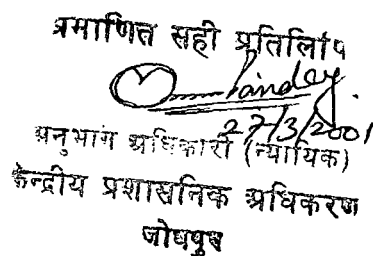 प्रमाणित सही प्रतिलिपि
Pandey
27/3/2001
अनुभाग अधिकारी (न्यायिक)
केन्द्रीय प्रशासनिक अधिकरण
जोधपुर